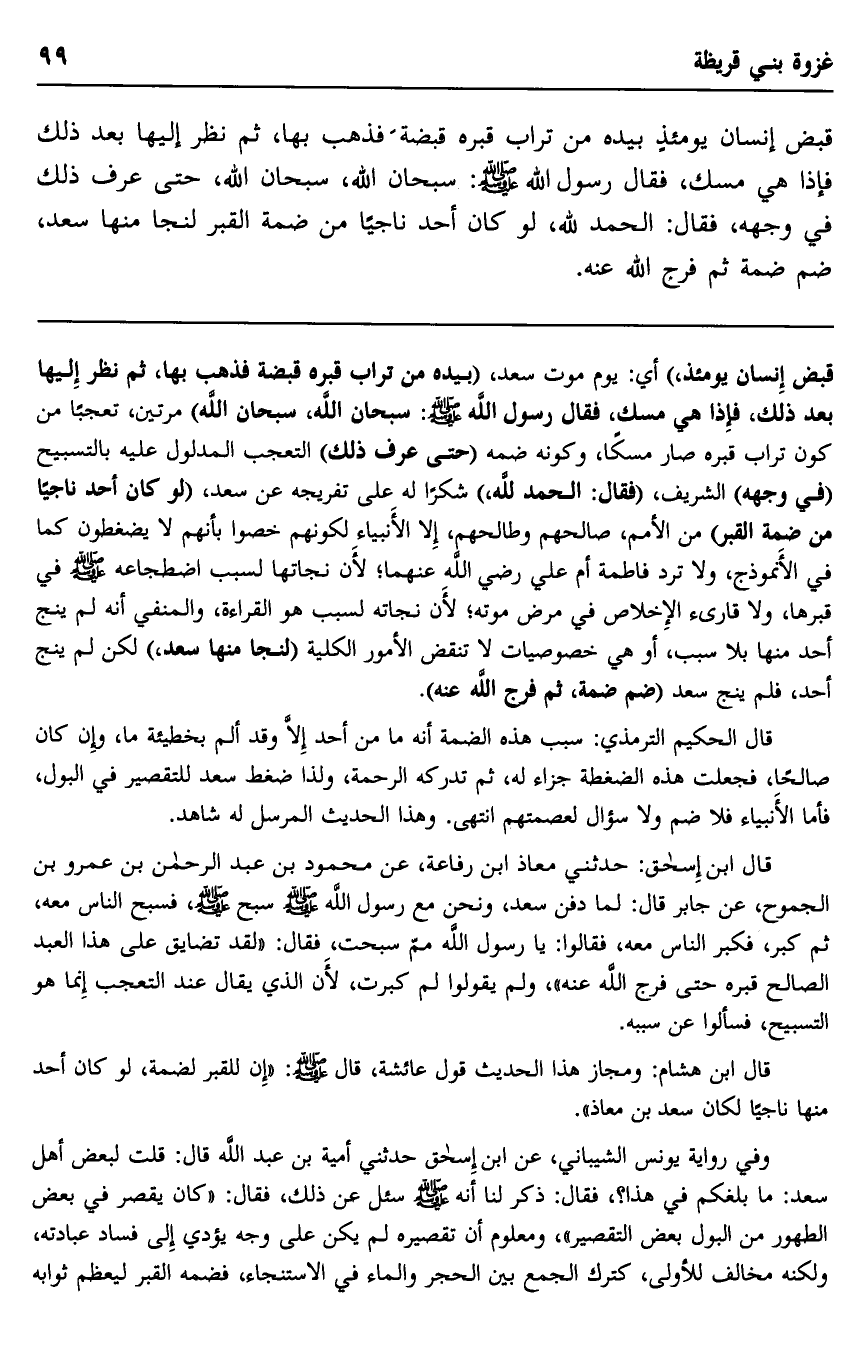 غزوة بنـي قريظة ٩٩
قبض إنسان يومئذٍ بيده من تراب قبره قبضة فذهب بها، ثم نظر إليها بعد ذلك
فإذا هي مسك، فقال رسول الله ﷺ: سبحان الله، سبحان الله، حتـى عرف ذلك
في وجهه، فقال: الـحمد لله، لو كان أحد ناجيًا من ضمة القبر لنـجا منها سعد،
ضم ضمة ثم فرج الله عنه.
قبض إنسان يومئذ،) أي: يوم موت سعد، (بـيده من تراب قبره قبضة فذهب بها، ثم نظر إلـيها
بعد ذلك، فإذا هي مسك، فقال رسول اللَّه ﷺ: سبحان اللَّه، سبحان اللَّه) مرتين، تعجبًا من
كون تراب قبره صار مسكًا، وكونه ضمه (حتـى عرف ذلك) التعجب الـمدلول عليه بالتسبيح
(فـي وجهه) الشريف، (فقال: الـحمد للَّه،) شكرًا له على تفريجه عن سعد، (لو كان أحد ناجيًا
من ضمة القبر) من الأمم، صالـحهم وطالـحهم، إلا الأنبياء لكونهم خصوا بأنهم لا يضغطون كما
في الأنموذج، ولا ترد فاطمة أم علي رضي اللَّه عنهما؛ لأن نـجاتها لسبب اضطجاعه ﷺ في
قبرها، ولا قارىء الإخلاص في مرض موته؛ لأن نـجاته لسبب هو القراءة، والـمنفي أنه لـم ينج
أحد منها بلا سبب، أو هي خصوصيات لا تنقض الأمور الكلية (لنـجا منها سعد،) لكن لـم ينج
أحد، فلم ينج سعد (ضم ضمة، ثم فرج اللَّه عنه).
قال الـحكيم الترمذي: سبب هذه الضمة أنه ما من أحد إلاَّ وقد ألـم بخطيئة ما، وإن كان
صالـحًا، فـجعلت هذه الضغطة جزاء له، ثم تدركه الرحمة، ولذا ضغط سعد للتقصير في البول،
فأما الأنبياء فلا ضم ولا سؤال لعصمتهم انتهى. وهذا الـحديث الـمرسل له شاهد.
قال ابن إسحٰق: حدثنـي معاذ ابن رفاعة، عن مـحمود بن عبد الرحمٰن بن عمرو بن
الـجموح، عن جابر قال: لـما دفن سعد، ونـحن مع رسول اللَّه ﷺ سبح ﷺ، فسبح الناس معه،
ثم كبر، فكبر الناس معه، فقالوا: يا رسول اللَّه ممّ سبحت، فقال: «لقد تضايق على هذا العبد
الصالـح قبره حتى فرج اللَّه عنه»، ولـم يقولوا لـم كبرت، لأن الذي يقال عند التعجب إنما هو
التسبيح، فسألوا عن سببه.
قال ابن هشام: ومجاز هذا الـحديث قول عائشة، قال ﷺ: «إن للقبر لضمة، لو كان أحد
منها ناجيًا لكان سعد بن معاذ».
وفي رواية يونس الشيباني، عن ابن إسحٰق حدثني أمية بن عبد اللَّه قال: قلت لبعض أهل
سعد: ما بلغكم في هذا؟، فقال: ذكر لنا أنه ﷺ سئل عن ذلك، فقال: «كان يقصر في بعض
الطهور من البول بعض التقصير»، ومعلوم أن تقصيره لـم يكن على وجه يؤدي إلى فساد عبادته،
ولكنه مخالف للأولى، كترك الـجمع بين الـحجر والـماء في الاستنجاء، فضمه القبر ليعظم ثوابه